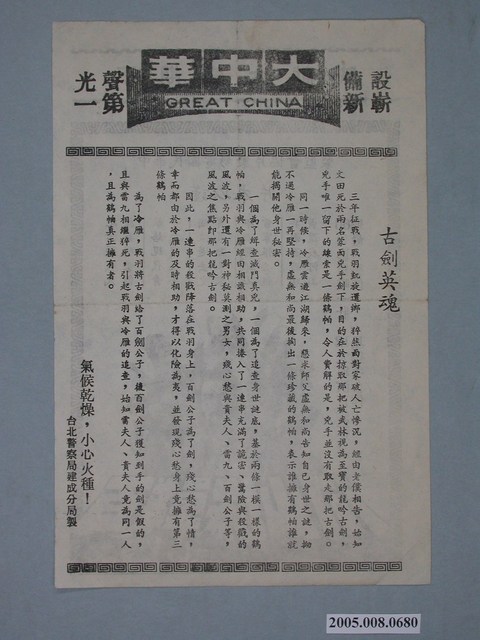 大中華
GREAT CHINA
設備嶄新
聲光第一
古劍英魂
三年征戰，戰羽凱旋還鄉，猝然面對家破人亡慘況，經由老僕相告，始知
文田死於兩名蒙面兇手劍下，目的在於掠取那把被武林視為至寶的龍吟古劍，
兇手唯一留下的線索是一條鶴帕，令人費解的是，兇手並沒有取走那把古劍。
同一時候，冷雁雲遊江湖歸來，懇求師父虛無和尚告知自己身世之謎，拗
不過冷雁一再堅持，虛無和尚最後掏出一條珍藏的鶴帕，表示誰擁有鶴帕誰就
能揭開他身世秘密。
一個為了緝查滅門真兇，一個為了追查身世謎底，基於兩條一模一樣的鶴
帕，戰羽與冷雁經由相識相助，共同捲入了一連串充滿了詭密、驚險與殺戮的
風波，另外還有一對神秘莫測之男女，殘心愁與賣夫人、雷九、百劍公子等，
風波之焦點即那把龍吟古劍。
因此，一連串的殺戮降落在戰羽身上，百劍公子為了劍，殘心愁為了情，
幸而都由於冷雁的及時相助，才得以化險為夷，並發現殘心愁身上竟擁有第三
條鶴帕
為了冷雁，戰羽將古劍給了百劍公子，後百劍公子獲知到手的劍是假的，
且與雷九相繼猝死，引起戰羽與冷雁的追查，始知雷夫人、貴夫人竟為同一人
，且為鶴帕真正擁有者。
氣候乾燥，小心火種！
台北警察局建成分局製
2005.008.0680